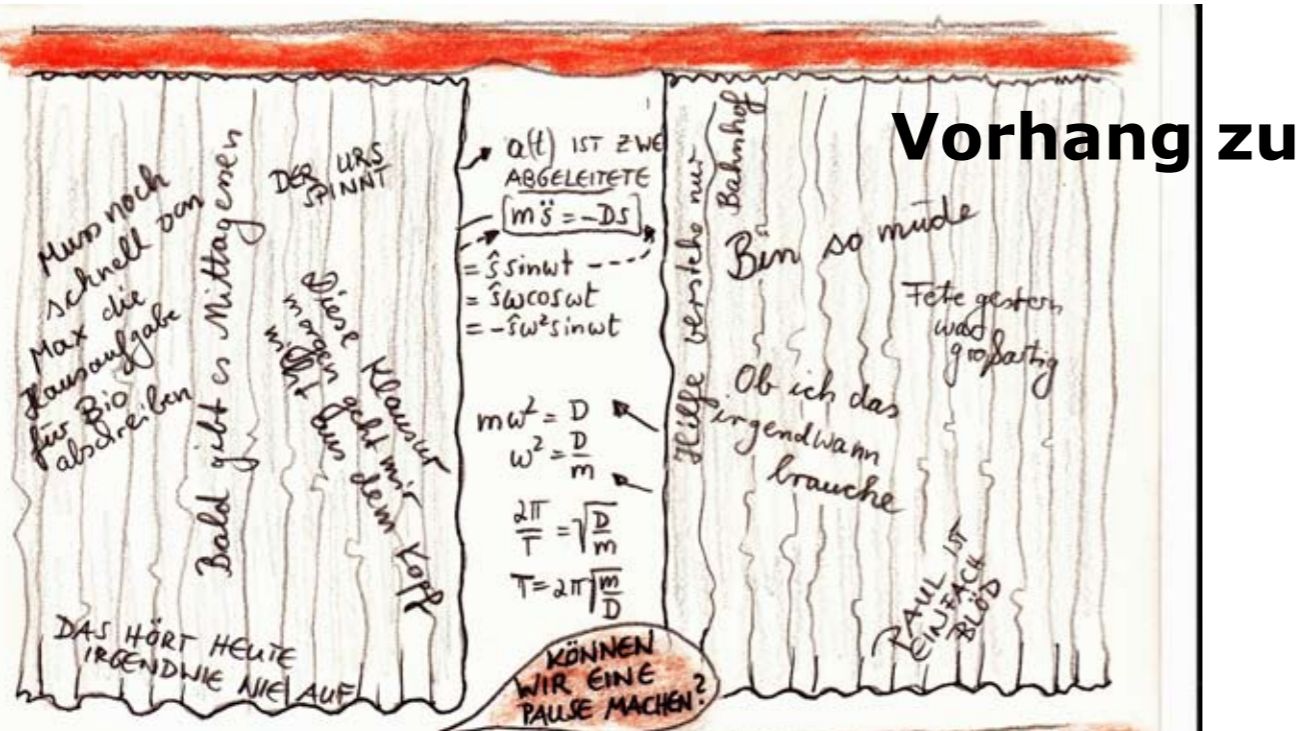 Vorhang zu
Muss noch
schnell von
Max die
Hausaufgabe
für Bio
abschreiben
Bald gibt es Mittagessen
DER URS
SPINNT
Diese Klausur
morgen geht mir
nicht aus dem Kopf
DAS HÖRT HEUTE
IRGENDWIE NIE AUF
a(t) IST ZWE
ABGELEITETE
[m s̈ = -Ds]
= ŝ sin ωt
= ŝω cos ωt
= -ŝω² sin ωt
mω² = D
ω² = D/m
2π/T = √(D/m)
T = 2π √(m/D)
KÖNNEN
WIR EINE
PAUSE MACHEN?
Hilfe verstehe nur
Bahnhof
Bin so müde
Fete gestern
war
großartig
Ob ich das
irgendwann
brauche
PAUL IST
EINFACH
BLÖD